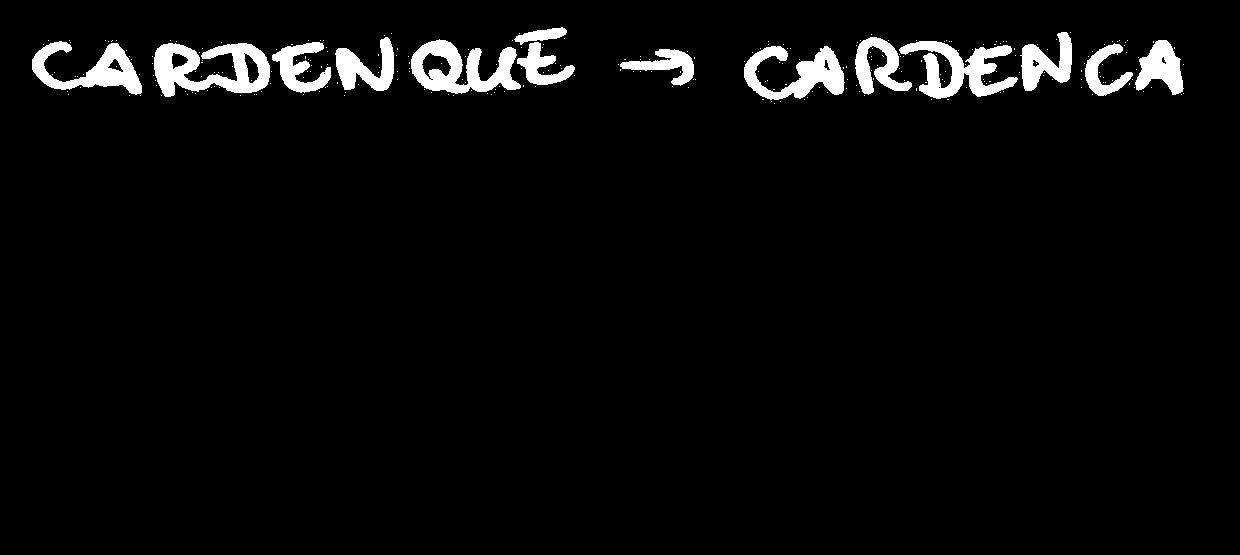 CARDENQUE → CARDENCA